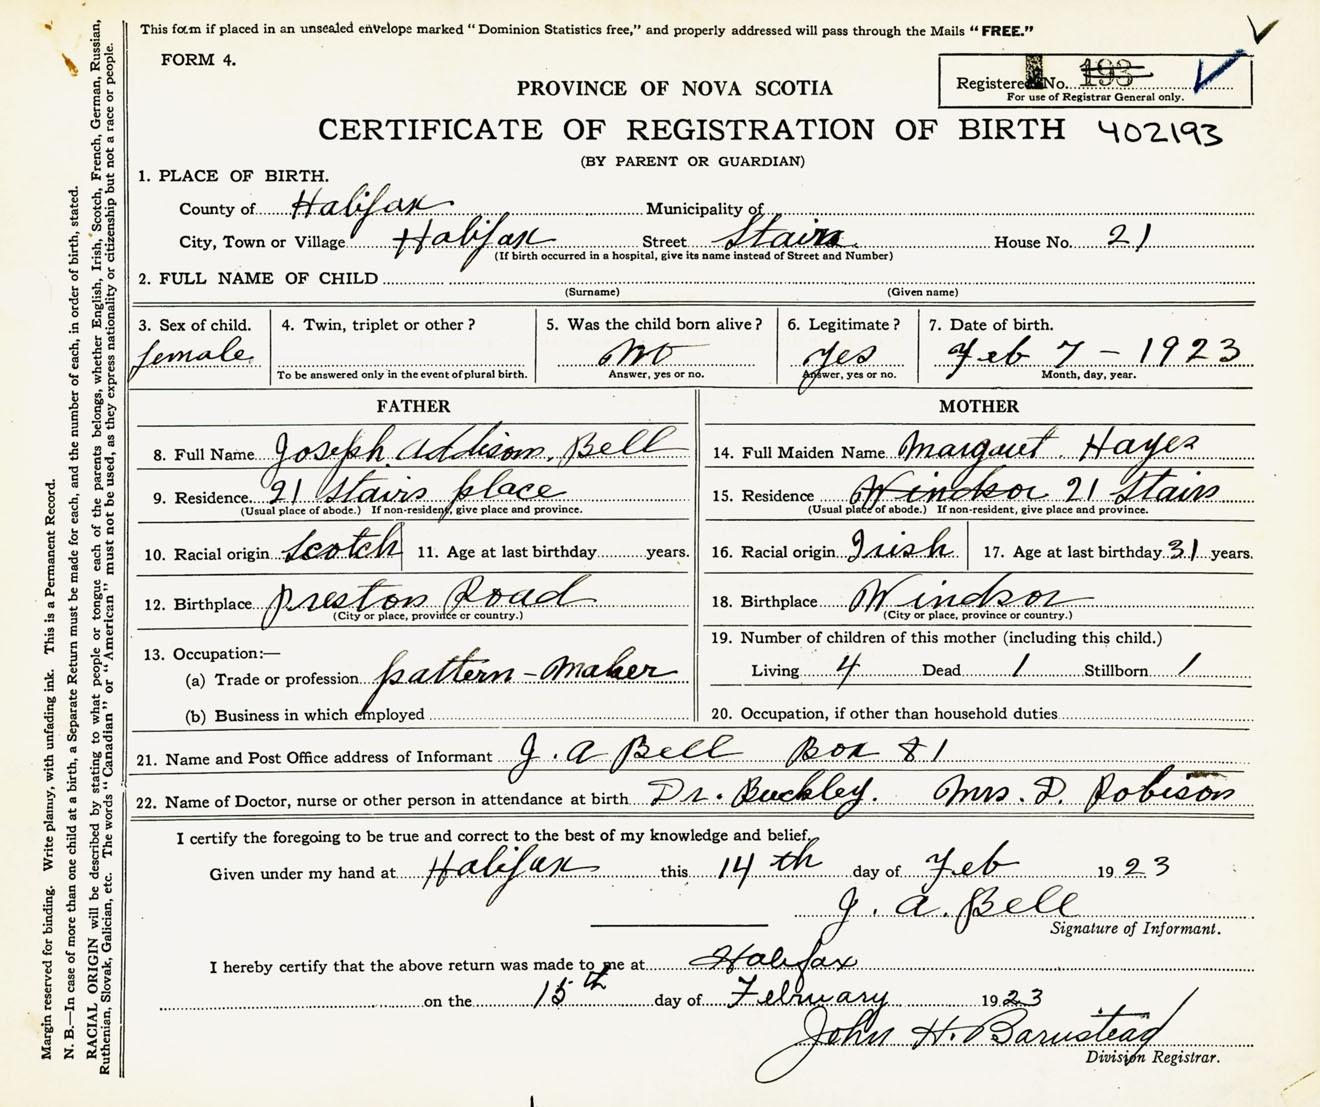 This form if placed in an unsealed envelope marked "Dominion Statistics free," and properly addressed will pass through the Mails "FREE."
FORM 4.
Registered No. 193
For use of Registrar General only.
PROVINCE OF NOVA SCOTIA
CERTIFICATE OF REGISTRATION OF BIRTH 402193
(BY PARENT OR GUARDIAN)
1. PLACE OF BIRTH.
County of Halifax Municipality of
City, Town or Village Halifax Street Stairs House No. 21
(If birth occurred in a hospital, give its name instead of Street and Number)
2. FULL NAME OF CHILD
(Surname) (Given name)
3. Sex of child. 4. Twin, triplet or other? 5. Was the child born alive? 6. Legitimate? 7. Date of birth.
female No Yes Feb 7 - 1923
To be answered only in the event of plural birth. Answer, yes or no. Answer, yes or no. Month, day, year.
FATHER MOTHER
8. Full Name Joseph Addison Bell 14. Full Maiden Name Margaret Hayes
9. Residence 21 Stairs place 15. Residence Windsor 21 Stairs
(Usual place of abode.) If non-resident, give place and province. (Usual place of abode.) If non-resident, give place and province.
10. Racial origin Scotch 11. Age at last birthday years. 16. Racial origin Irish 17. Age at last birthday 31 years.
12. Birthplace Preston Road 18. Birthplace Windsor
(City or place, province or country.) (City or place, province or country.)
13. Occupation:— 19. Number of children of this mother (including this child.)
(a) Trade or profession pattern-maker Living 4 Dead 1 Stillborn 1
(b) Business in which employed 20. Occupation, if other than household duties
21. Name and Post Office address of Informant J. A Bell Box 81
22. Name of Doctor, nurse or other person in attendance at birth Dr. Buckley. Mrs. D. Robison
I certify the foregoing to be true and correct to the best of my knowledge and belief.
Given under my hand at Halifax this 14th day of Feb 1923
J. A. Bell
Signature of Informant.
I hereby certify that the above return was made to me at Halifax
on the 15th day of February 1923
John H. Barnstead
Division Registrar.
Margin reserved for binding. Write plainly, with unfading ink. This is a Permanent Record.
N. B.—In case of more than one child at a birth, a Separate Return must be made for each, and the number of each, in order of birth, stated.
RACIAL ORIGIN will be described by stating to what people or tongue each of the parents belongs, whether English, Irish, Scotch, French, German, Russian,
Ruthenian, Slovak, Galician, etc. The words "Canadian" or "American" must not be used, as they express nationality or citizenship but not a race or people.